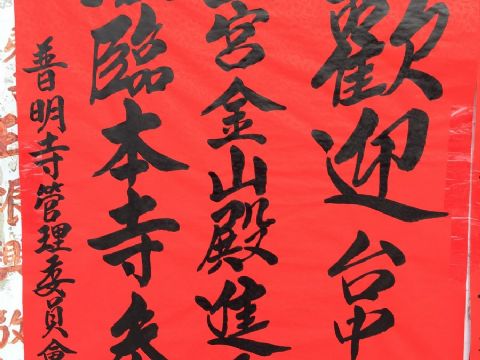 歡迎台中
宮金山殿進
臨本寺參
普明寺管理委員會